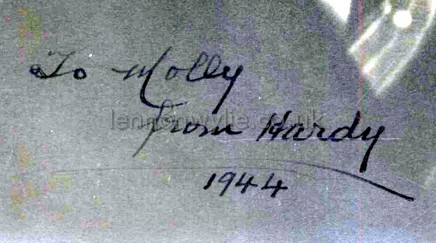 To Molly
lennonwylie.co.uk
From Hardy
1944